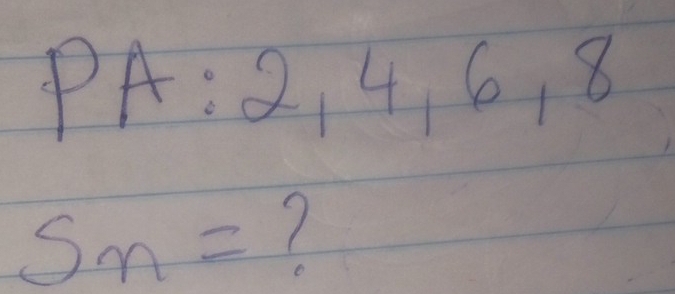 PA: 2, 4, 6, 8
Sn = ?